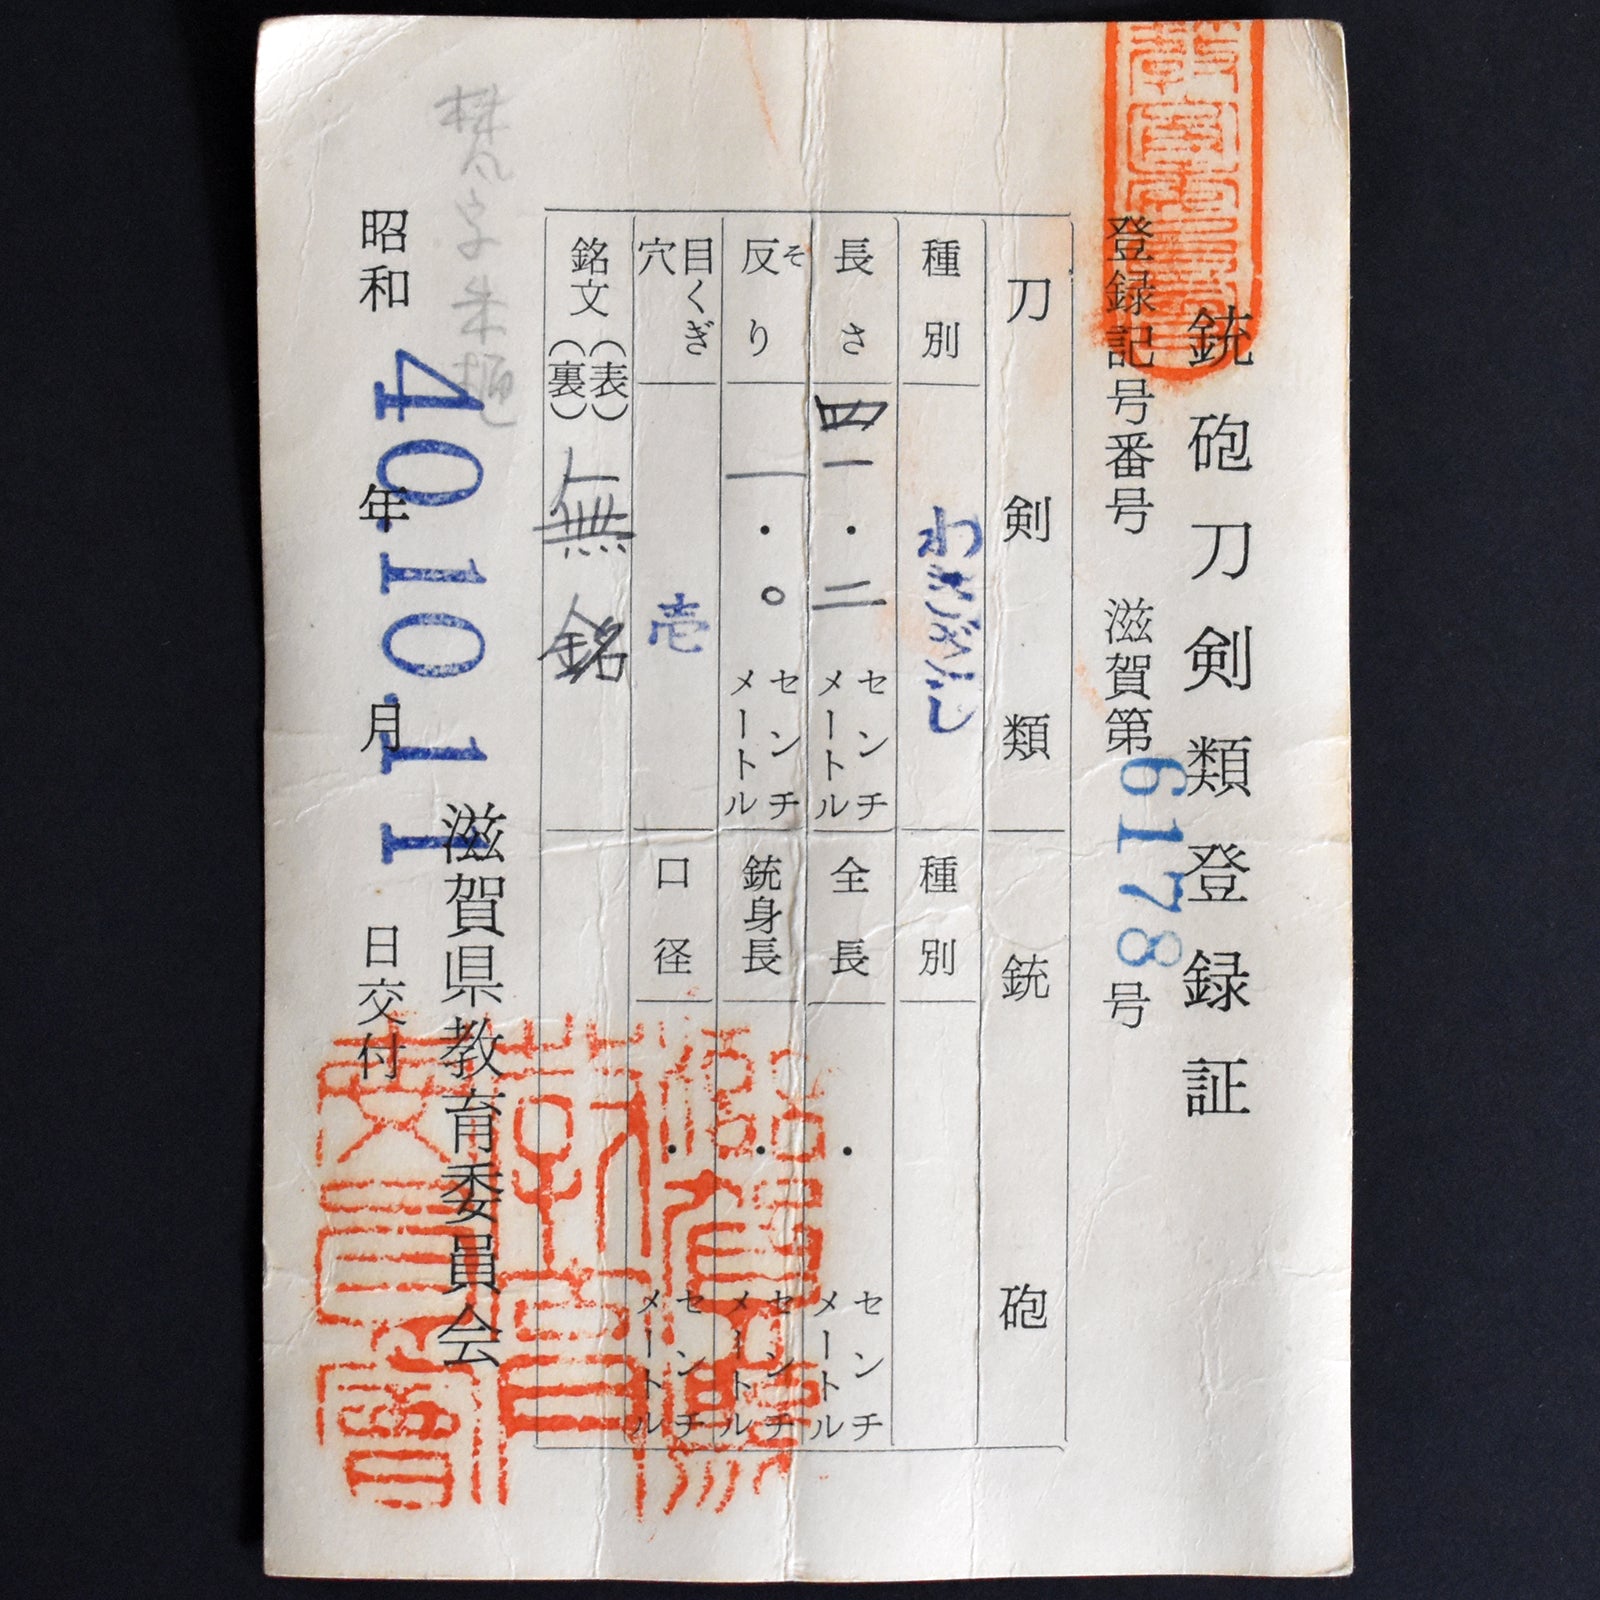 銃砲刀剣類登録証
登録記号番号 滋賀第6178号
刀剣類
銃砲
種別 わきざし
種別
長さ 四一・二 センチメートル
全長 ・ センチメートル
反り そ 一・〇 センチメートル
銃身長 ・ センチメートル
目くぎ穴 壱
口径 ・ センチメートル
銘文 (表)(裏) 無銘
滋賀県教育委員会
昭和 年 月 日交付
40.10.11
梵字 樋